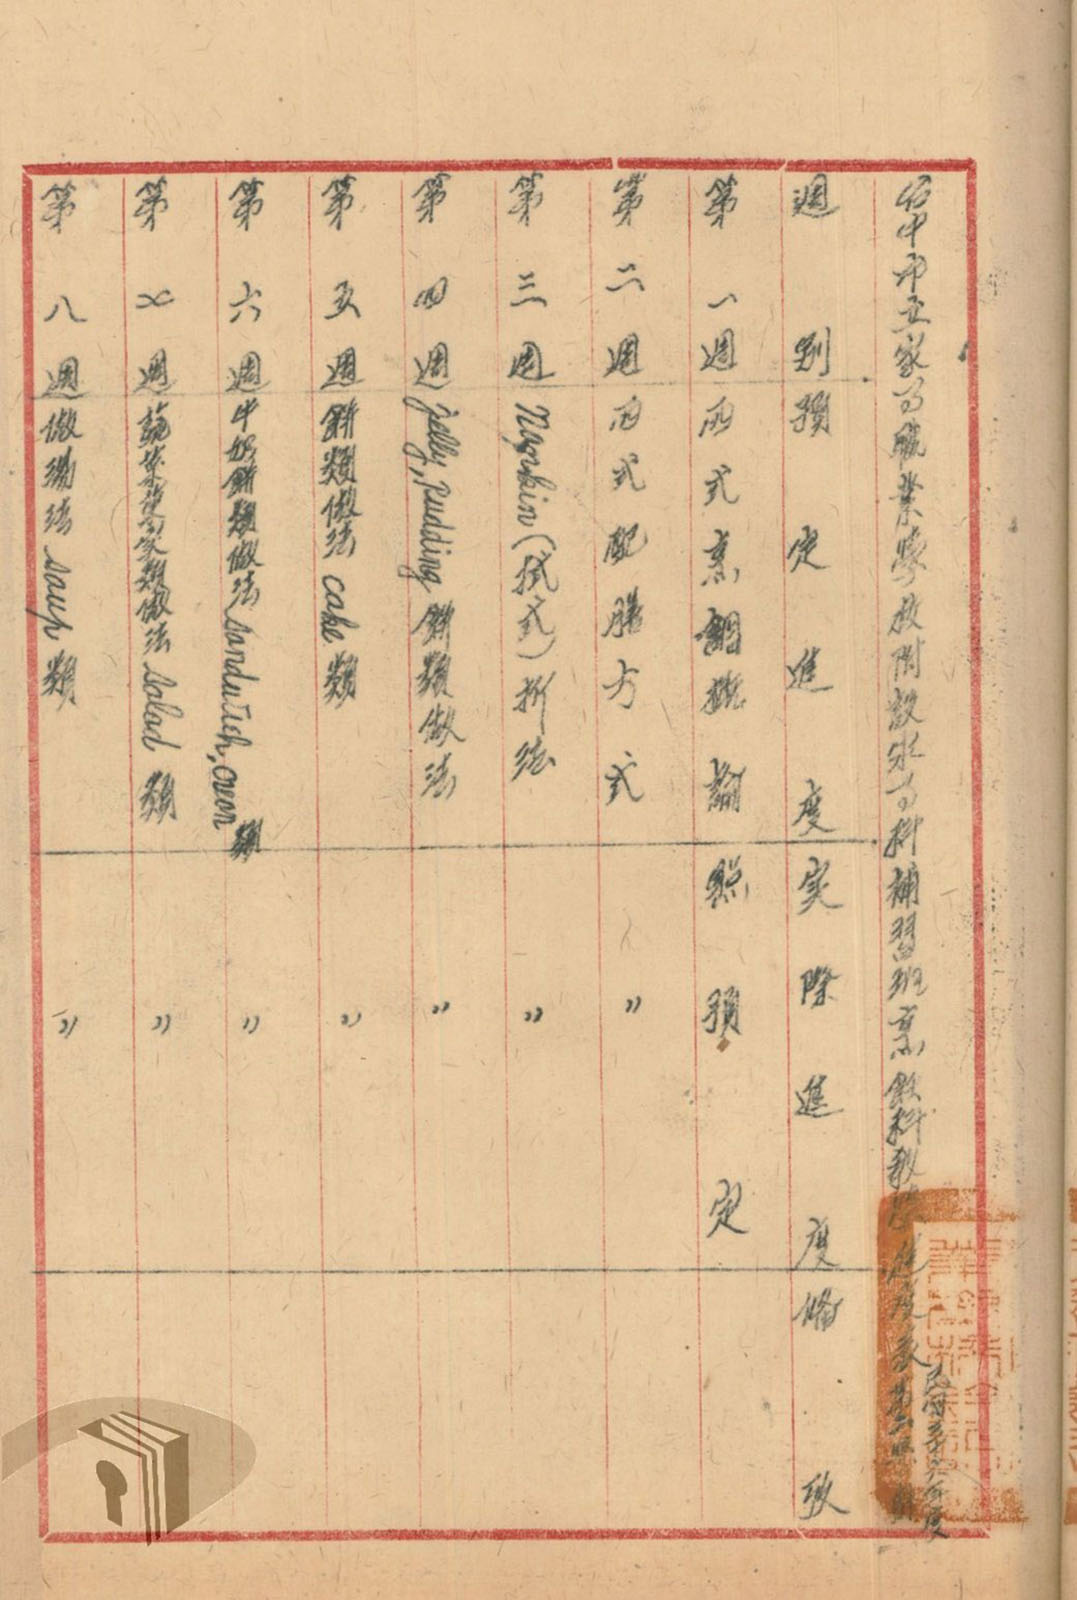 台中市立家事職業學校附設家事科補習班烹飪科教學進度表 第二學期
民國三十六年度
週別 預定進度 実際進度 備攷
第一週 西式烹調概論 照預定
第二週 西式配膳方式 〃
第三週 Napkin(拭式)折法 〃
第四週 jelly, Pudding 餅類做法 〃
第五週 餅類做法 cake 類 〃
第六週 牛奶餅類做法 sandwich, cream 類 〃
第七週 蔬菜薯家類做法 salad 類 〃
第八週 做湯法 soup 類 〃